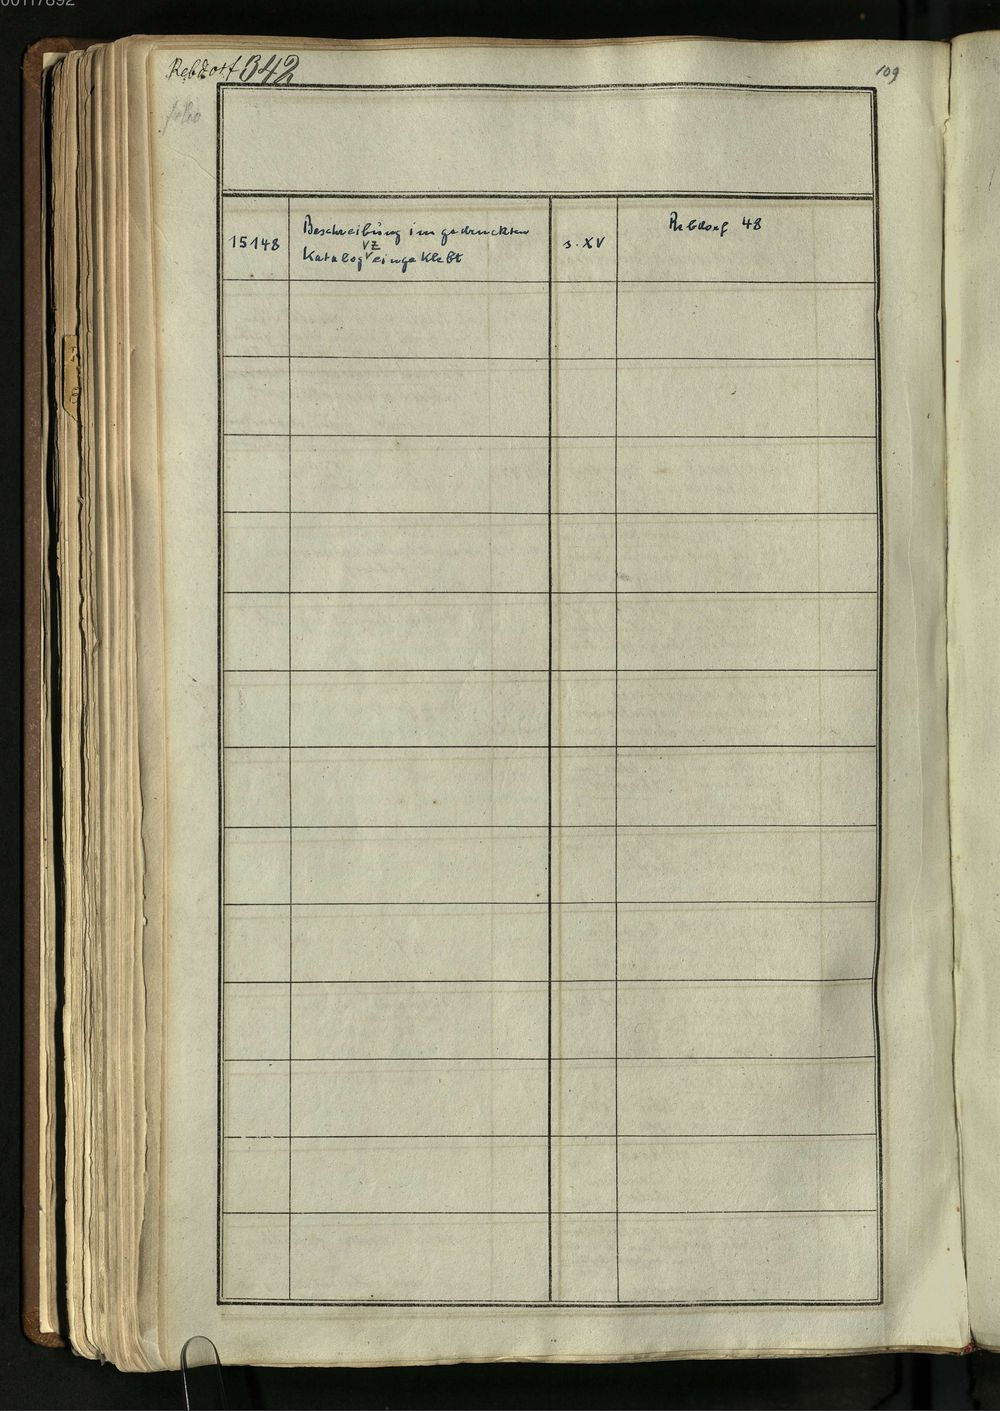 Rebdorf 342
109
folio
15148
Beschreibung im gedruckten
Katalog VZ eingeklebt
s. XV
Rebdorf 48